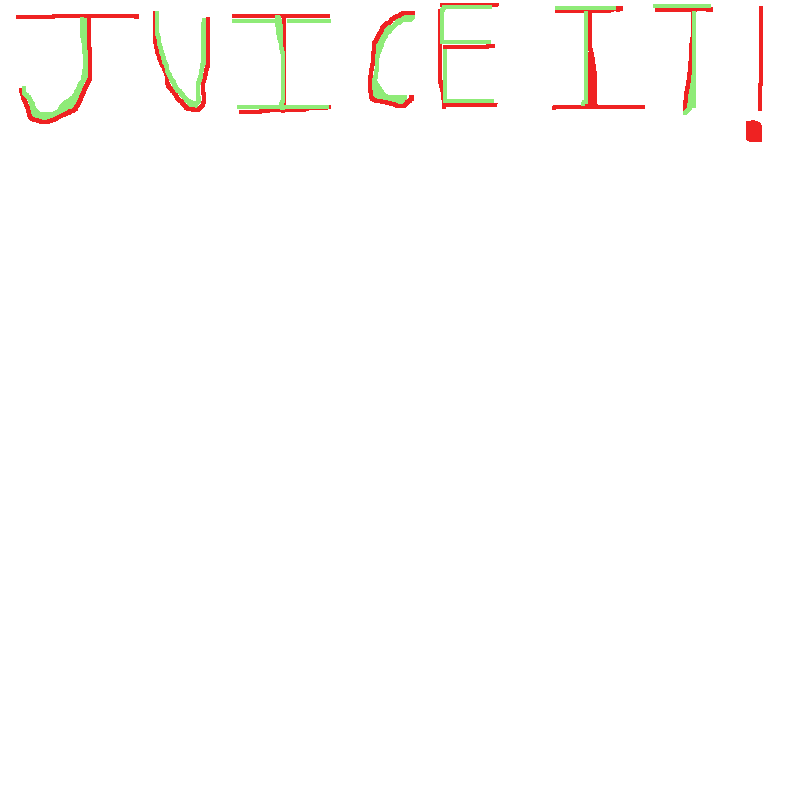 JUICE IT!